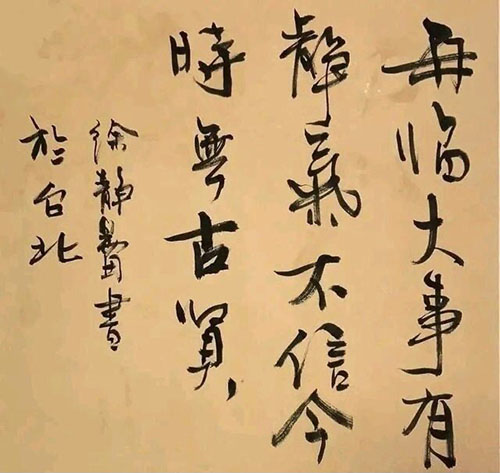 每临大事有
靜氣不信今
時無古賢
徐靜蕾書
於台北